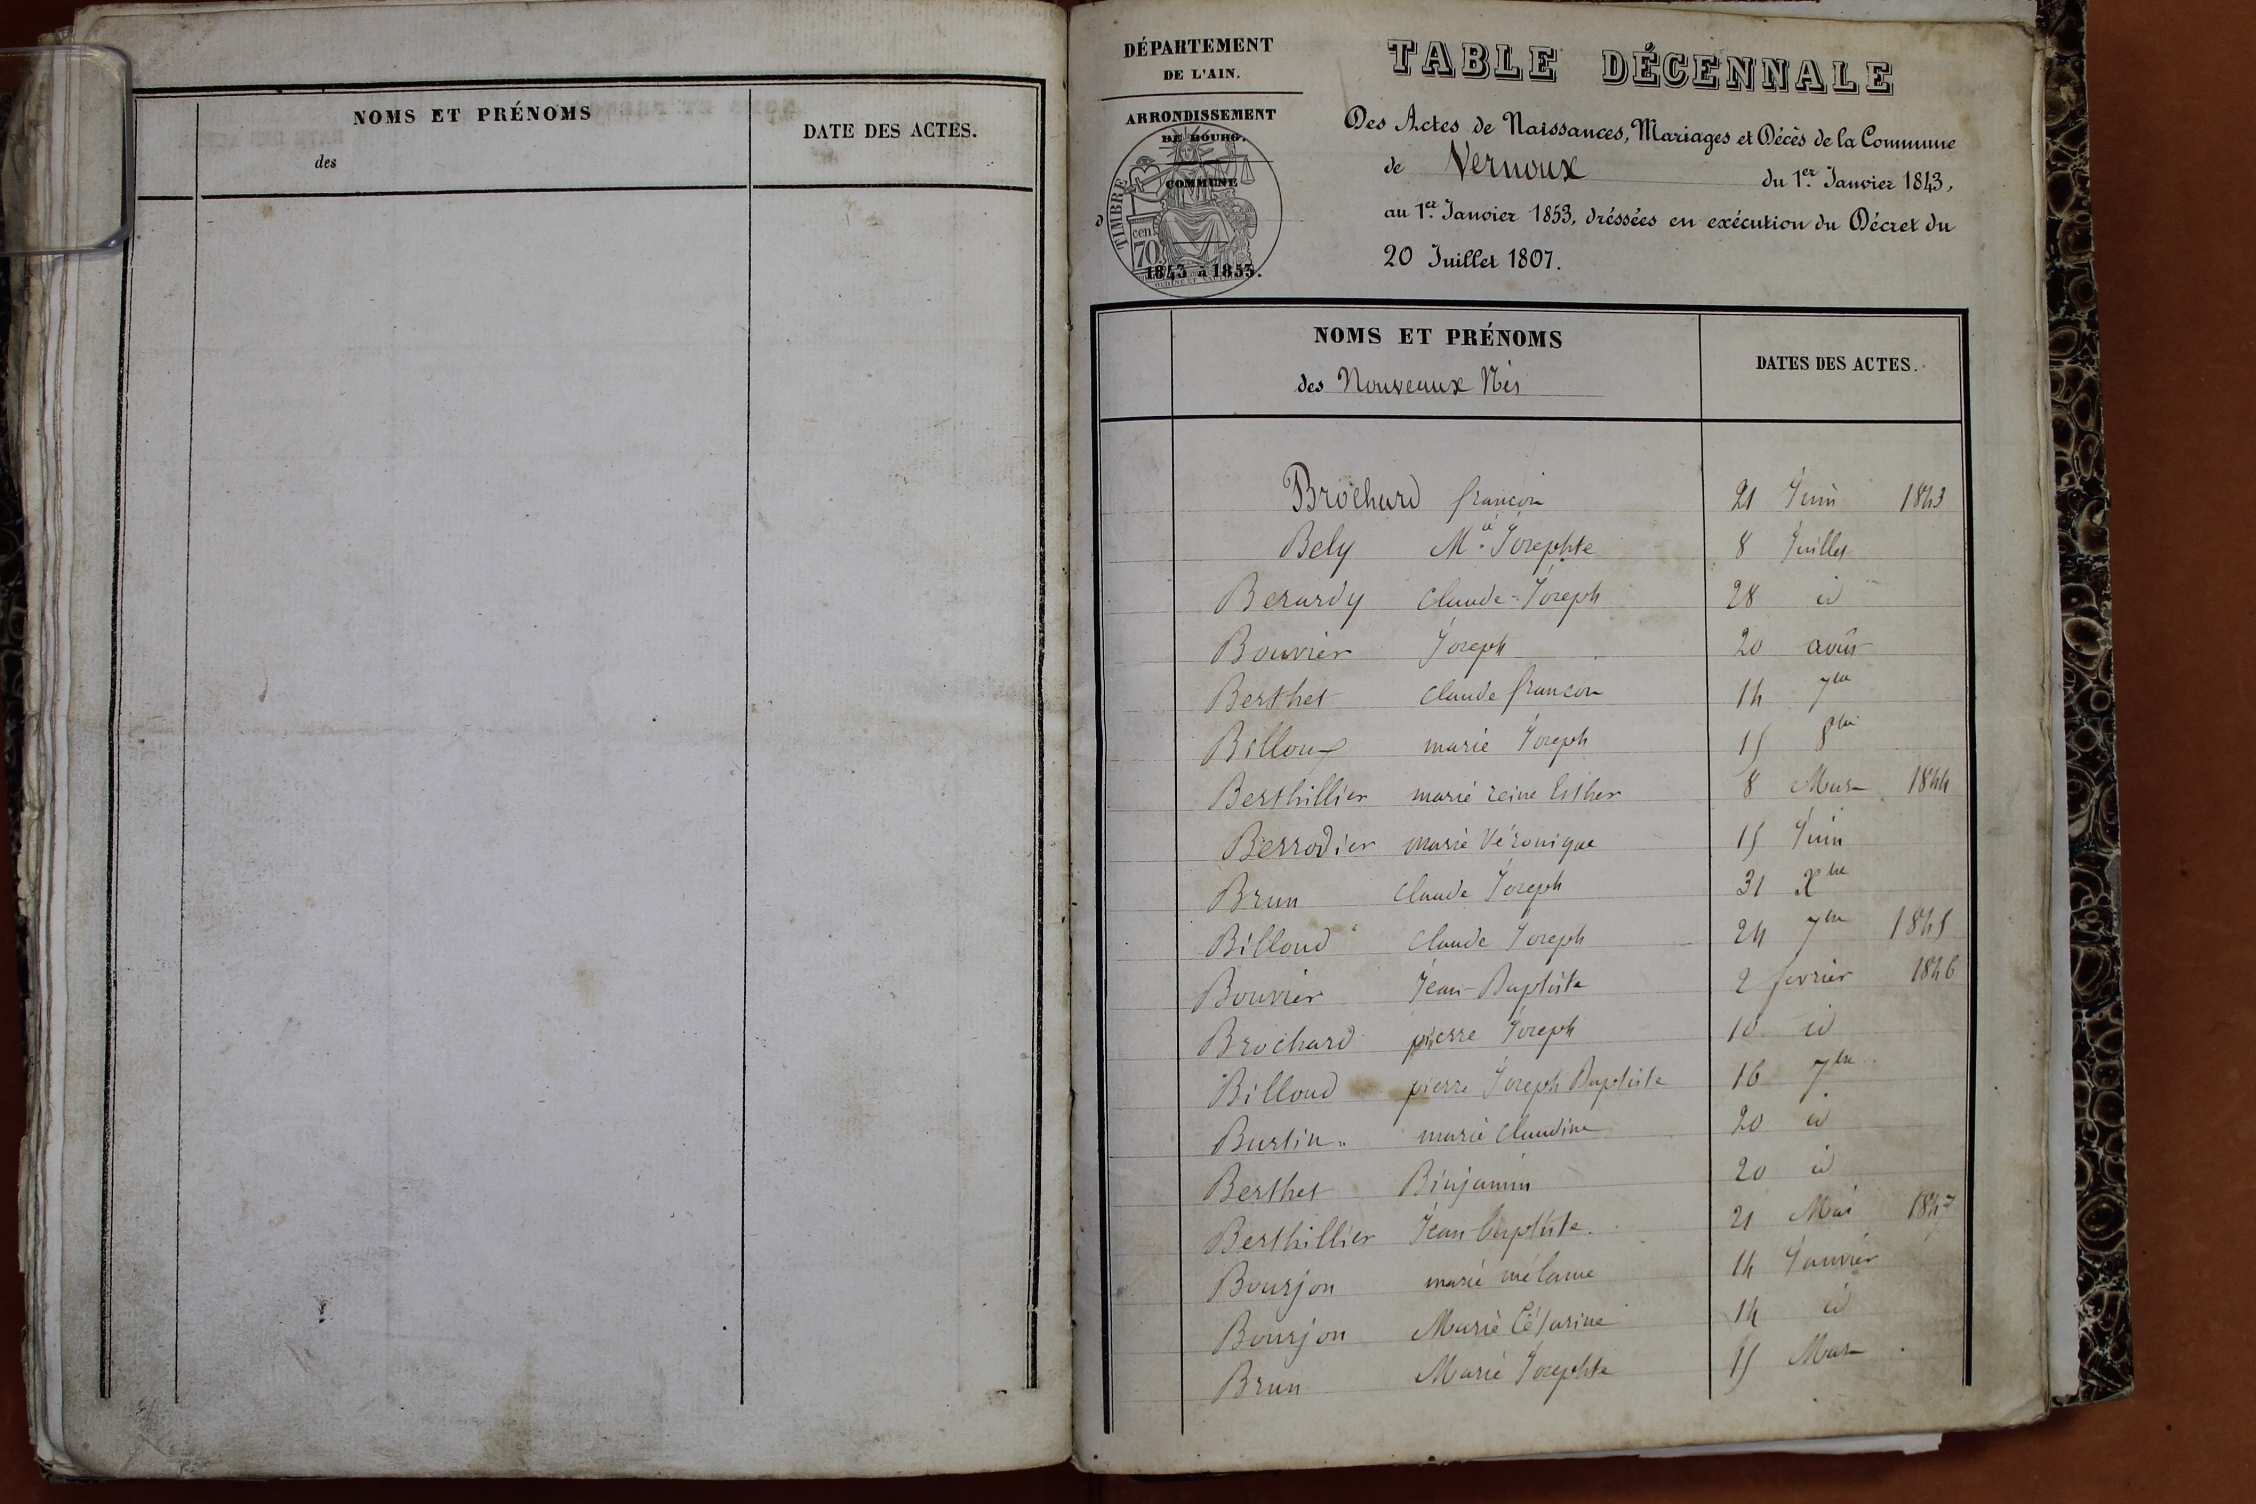 NOMS ET PRÉNOMS
des
DATE DES ACTES.
DÉPARTEMENT
DE L'AIN.
ARRONDISSEMENT
DE BOURG.
COMMUNE
d
TIMBRE
cen.
70
1843 à 1853.
TABLE DÉCENNALE
Des Actes de Naissances, Mariages et Décès de la Commune
de Vernoux du 1er. Janvier 1843,
au 1er. Janvier 1853, dréssées en exécution du Décret du
20 Juillet 1807.
NOMS ET PRÉNOMS
des Nouveaux Nés
DATES DES ACTES.
Brochard françois 21 Juin 1843
Bely Mie. Josephte 8 Juillet
Berardy Claude-Joseph 28 id
Bouvier Joseph 20 août
Berthet Claude françois 14 7bre
Billoux marie Joseph 15 8bre
Berthillier marie reine Esther 8 Mars 1844
Berrodier marie Véronique 15 Juin
Brun Claude Joseph 31 Xbre
Billoud Claude Joseph 24 7bre 1845
Bouvier Jean-Baptiste 2 fevrier 1846
Brochard pierre Joseph 10 id
Billoud pierre Joseph Baptiste 16 7bre
Burtin marie Claudine 20 id
Berthet Binjamin 20 id
Berthillier Jean baptiste 21 Mai 1847
Bourjon marie mélanie 14 Janvier
Bourjon Marie Césarine 14 id
Brun Marie Josephte 15 Mars